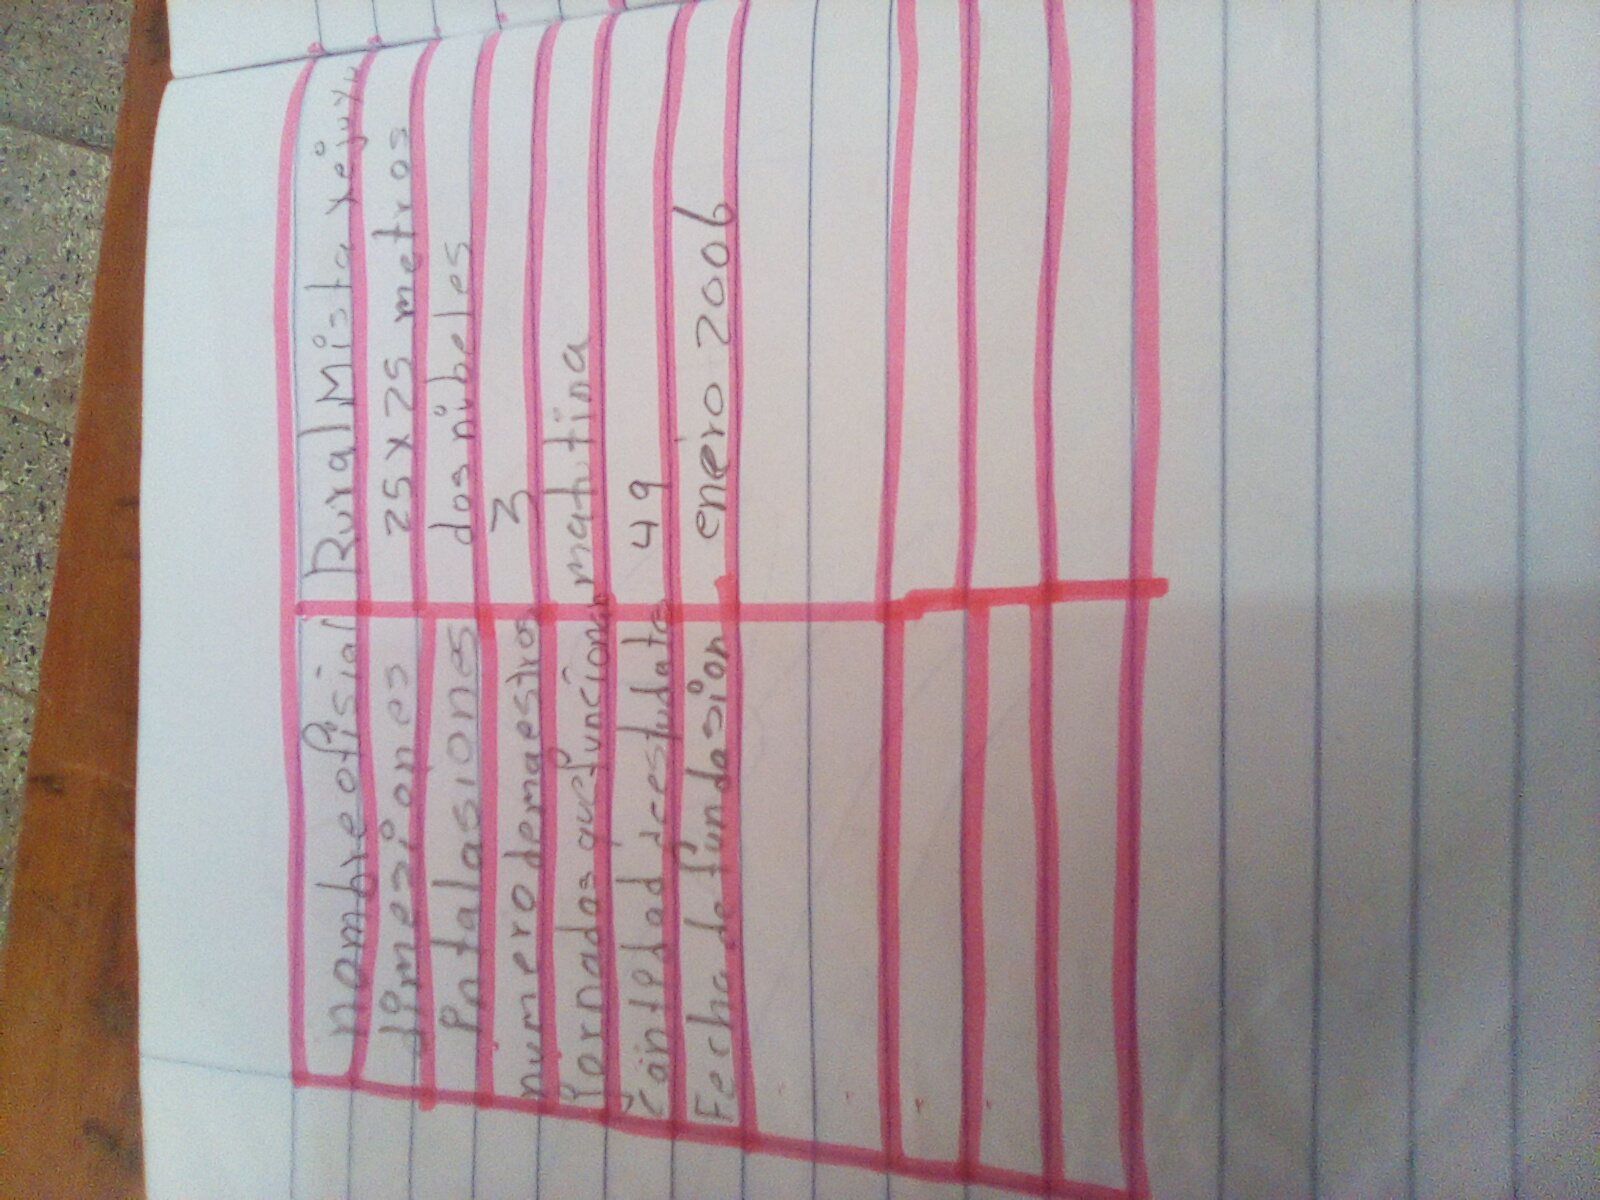 nombre ofisial Rural Mista xejuyu
dimesiones 25 x 25 metros
intalasiones dos nibeles
numero de maestros 3
jornadas que funcionan matutina
cantidad de estudates 49
Fecha de fundasion enero 2006